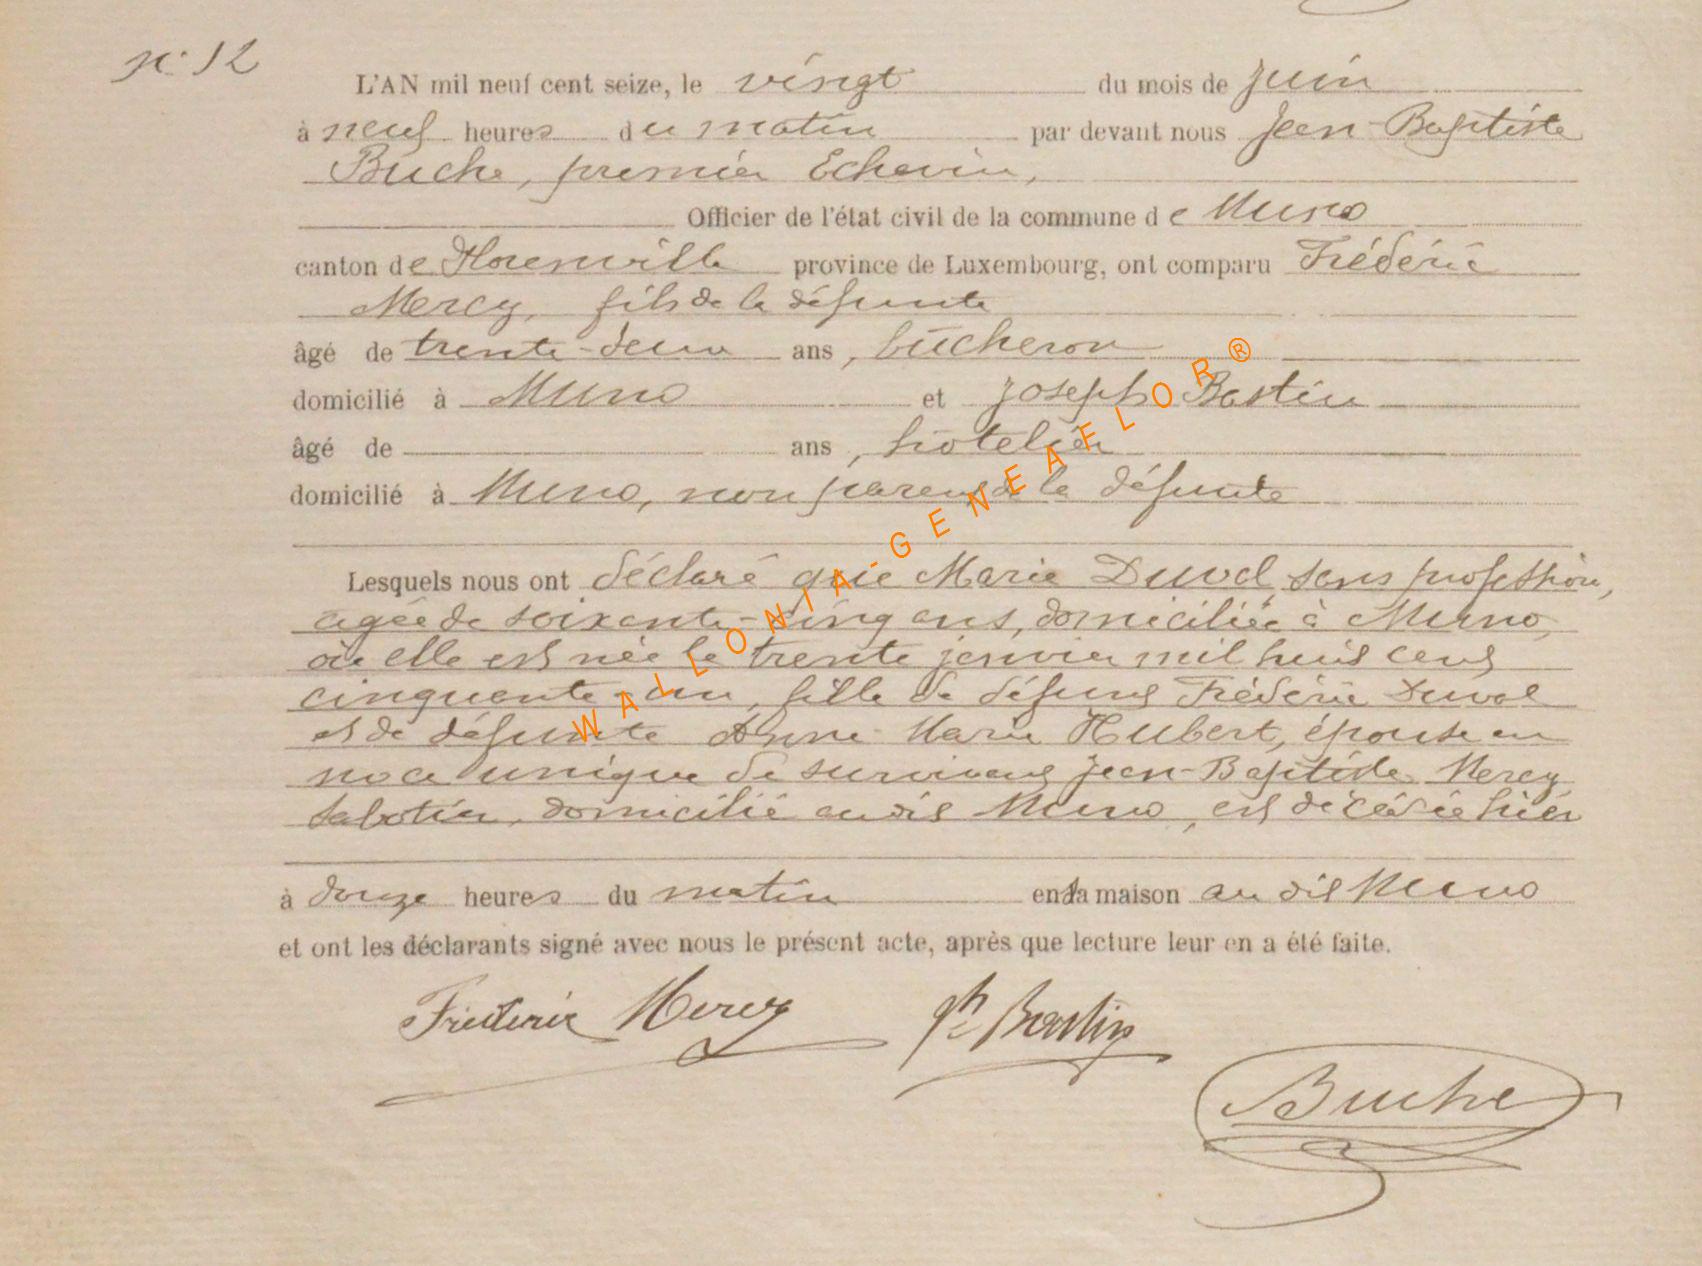 N° 12
L'AN mil neuf cent seize, le vingt du mois de juin
à neuf heures du matin par devant nous Jean-Baptiste
Buche, premier Echevin,
Officier de l'état civil de la commune de Muno
canton de Florenville province de Luxembourg, ont comparu Frédéric
Mercy, fils de la défunte
âgé de trente-deux ans, bûcheron
domicilié à Muno et Joseph Bastin
âgé de ans, hôtelier
domicilié à Muno, non parent de la défunte
Lesquels nous ont déclaré que Marie Duval, sans profession,
agée de soixante-cinq ans, domiciliée à Muno,
où elle est née le trente janvier mil huit cent
cinquante-un, fille de défunt Frédéric Duval
et de défunte Anne-Marie Hubert, épouse en
noce unique de survivant Jean-Baptiste Mercy
sabotier, domicilié audit Muno, est décédée hier
à douze heures du matin en sa maison audit Muno
et ont les déclarants signé avec nous le présent acte, après que lecture leur en a été faite.
Frederic Mercy Jh Bastin
Buche
WALLONIA-GENEAFLOR®